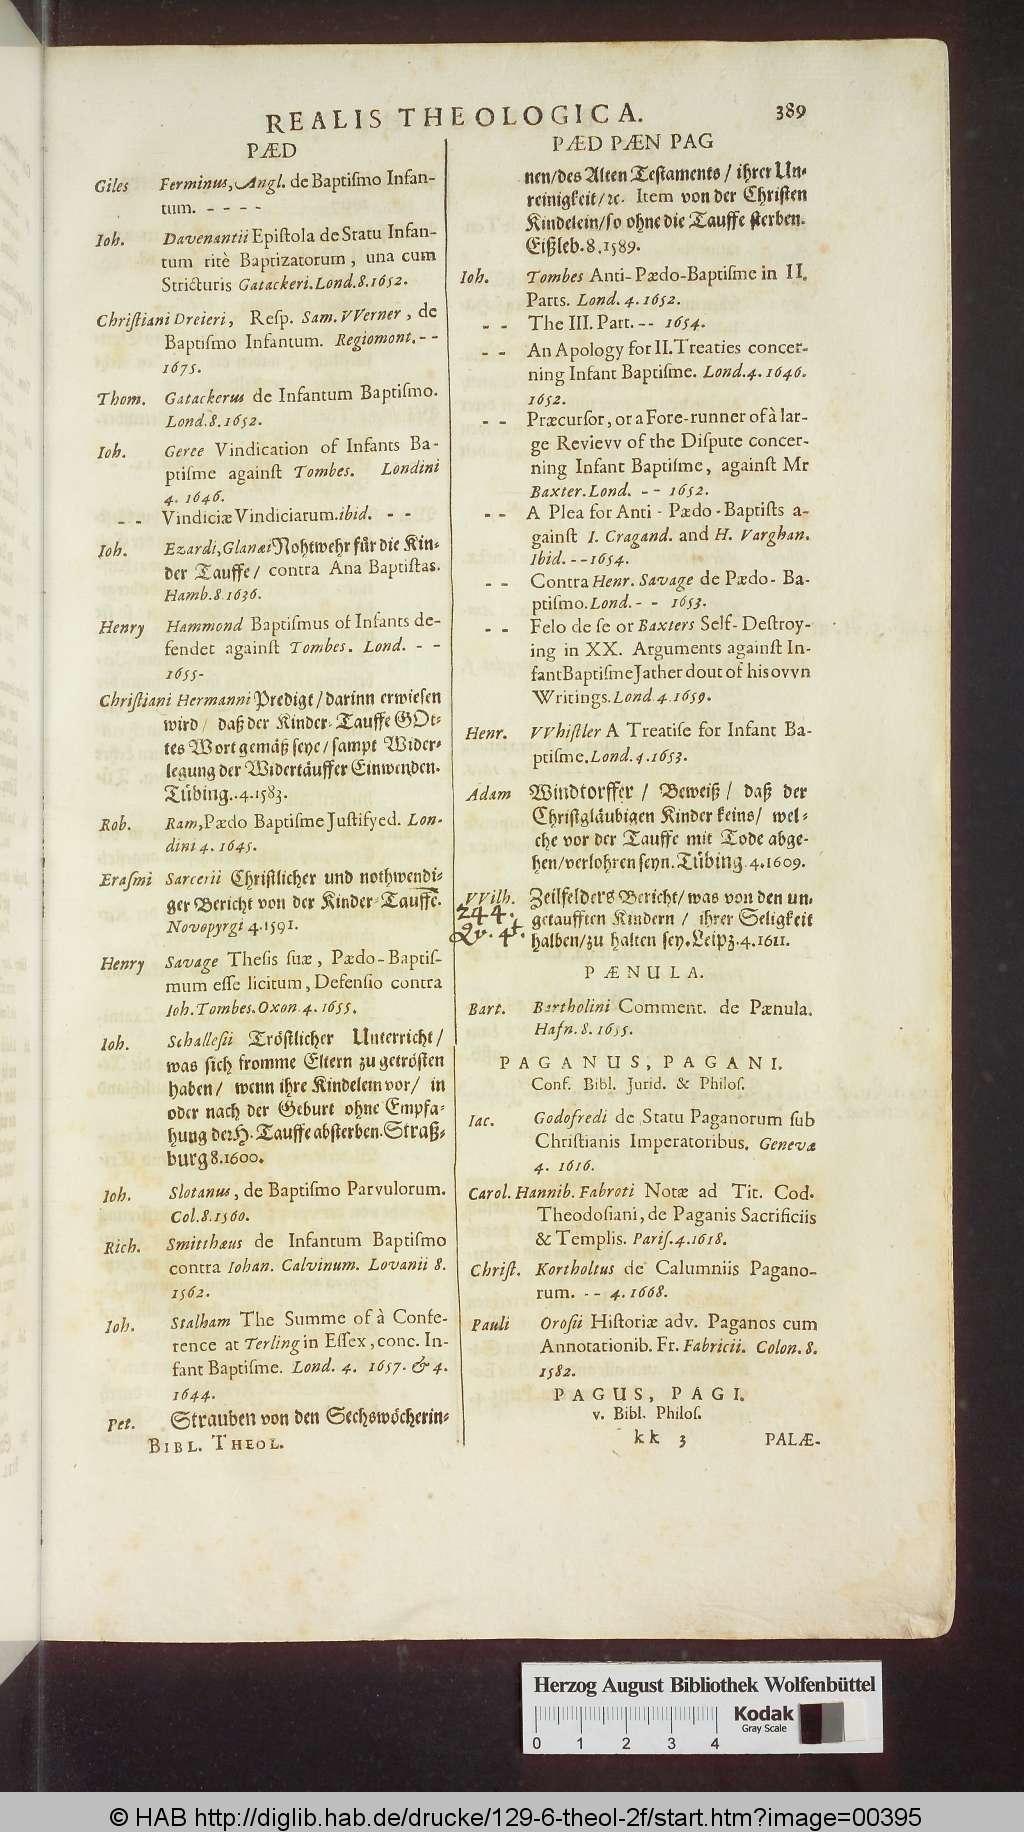 REALIS THEOLOGICA. 389
PÆD
Giles Ferminus, Angl. de Baptiſmo Infan-
tum. - - - -
Ioh. Davenantii Epiſtola de Statu Infan-
tum ritè Baptizatorum, una cum
Stricturis Gatackeri. Lond. 8. 1652.
Chriſtiani Dreieri, Reſp. Sam. VVerner, de
Baptiſmo Infantum. Regiomont. - -
1675.
Thom. Gatackerus de Infantum Baptiſmo.
Lond. 8. 1652.
Ioh. Geree Vindication of Infants Ba-
ptiſme againſt Tombes. Londini
4. 1646.
- - Vindiciæ Vindiciarum. ibid. - -
Ioh. Ezardi, Glanæi Nohtwehr für die Kin-
der Tauffe / contra Ana Baptiſtas.
Hamb. 8. 1636.
Henry Hammond Baptiſmus of Infants de-
fendet againſt Tombes. Lond. - -
1655-
Chriſtiani Hermanni Predigt / darinn erwieſen
wird / daß der Kinder-Tauffe GOt-
tes Wort gemäß ſeye / ſampt Wider-
legung der Widertäuffer Einwenden.
Tübing. . 4. 1583.
Rob. Ram, Pædo Baptiſme Juſtifyed. Lon-
dini 4. 1645.
Eraſmi Sarcerii Chriſtlicher und nothwendi-
ger Bericht von der Kinder-Tauffe.
Novopyrgi 4. 1591.
Henry Savage Theſis ſuæ, Pædo-Baptiſ-
mum eſſe licitum, Defenſio contra
Ioh. Tombes. Oxon. 4. 1655.
Ioh. Schalleſii Tröſtlicher Unterricht /
was ſich fromme Eltern zu getröſten
haben / wenn ihre Kindelein vor / in
oder nach der Geburt ohne Empfa-
hung der H. Tauffe abſterben. Straß-
burg 8. 1600.
Ioh. Slotanus, de Baptiſmo Parvulorum.
Col. 8. 1560.
Rich. Smitthæus de Infantum Baptiſmo
contra Iohan. Calvinum. Lovanii 8.
1562.
Ioh. Stalham The Summe of à Confe-
rence at Terling in Eſſex, conc. In-
fant Baptiſme. Lond. 4. 1657. & 4.
1644.
Pet. Strauben von den Sechswöcherin-
BIBL. THEOL.
PÆD PÆN PAG
nen / des Alten Teſtaments / ihrer Un-
reinigkeit / ꝛc. Item von der Chriſten
Kindelein / ſo ohne die Tauffe ſterben.
Eißleb. 8. 1589.
Ioh. Tombes Anti-Pædo-Baptiſme in II.
Parts. Lond. 4. 1652.
- - The III. Part. - - 1654.
- - An Apology for II. Treaties concer-
ning Infant Baptiſme. Lond. 4. 1646.
1652.
- - Præcurſor, or a Fore-runner of à lar-
ge Revievv of the Diſpute concer-
ning Infant Baptiſme, againſt Mr
Baxter. Lond. - - 1652.
- - A Plea for Anti-Pædo-Baptiſts a-
gainſt I. Cragand. and H. Varghan.
Ibid. - - 1654.
- - Contra Henr. Savage de Pædo-Ba-
ptiſmo. Lond. - - 1653.
- - Felo de ſe or Baxters Self-Deſtroy-
ing in XX. Arguments againſt In-
fant Baptiſme Jather dout of his ovvn
Writings. Lond 4. 1659.
Henr. VVhiſtler A Treatiſe for Infant Ba-
ptiſme. Lond. 4. 1653.
Adam Windtorffer / Beweiß / daß der
Chriſtgläubigen Kinder keins / wel-
che vor der Tauffe mit Tode abge-
hen / verlohren ſeyn. Tübing. 4. 1609.
VVilh. Zeilfelders Bericht / was von den un-
244. getaufften Kindern / ihrer Seligkeit
Qv. 4t. halben / zu halten ſey. Leipz. 4. 1611.
PÆNULA.
Bart. Bartholini Comment. de Pænula.
Hafn. 8. 1655.
PAGANUS, PAGANI.
Conf. Bibl. Jurid. & Philoſ.
Iac. Godofredi de Statu Paganorum ſub
Chriſtianis Imperatoribus. Genevæ
4. 1616.
Carol. Hannib. Fabroti Notæ ad Tit. Cod.
Theodoſiani, de Paganis Sacrificiis
& Templis. Pariſ. 4. 1618.
Chriſt. Kortholtus de Calumniis Pagano-
rum. - - 4. 1668.
Pauli Oroſii Hiſtoriæ adv. Paganos cum
Annotationib. Fr. Fabricii. Colon. 8.
1582.
PAGUS, PAGI.
v. Bibl. Philoſ.
kk 3 PALÆ-
Herzog August Bibliothek Wolfenbüttel
Kodak
Gray Scale
0 1 2 3 4
© HAB http://diglib.hab.de/drucke/129-6-theol-2f/start.htm?image=00395